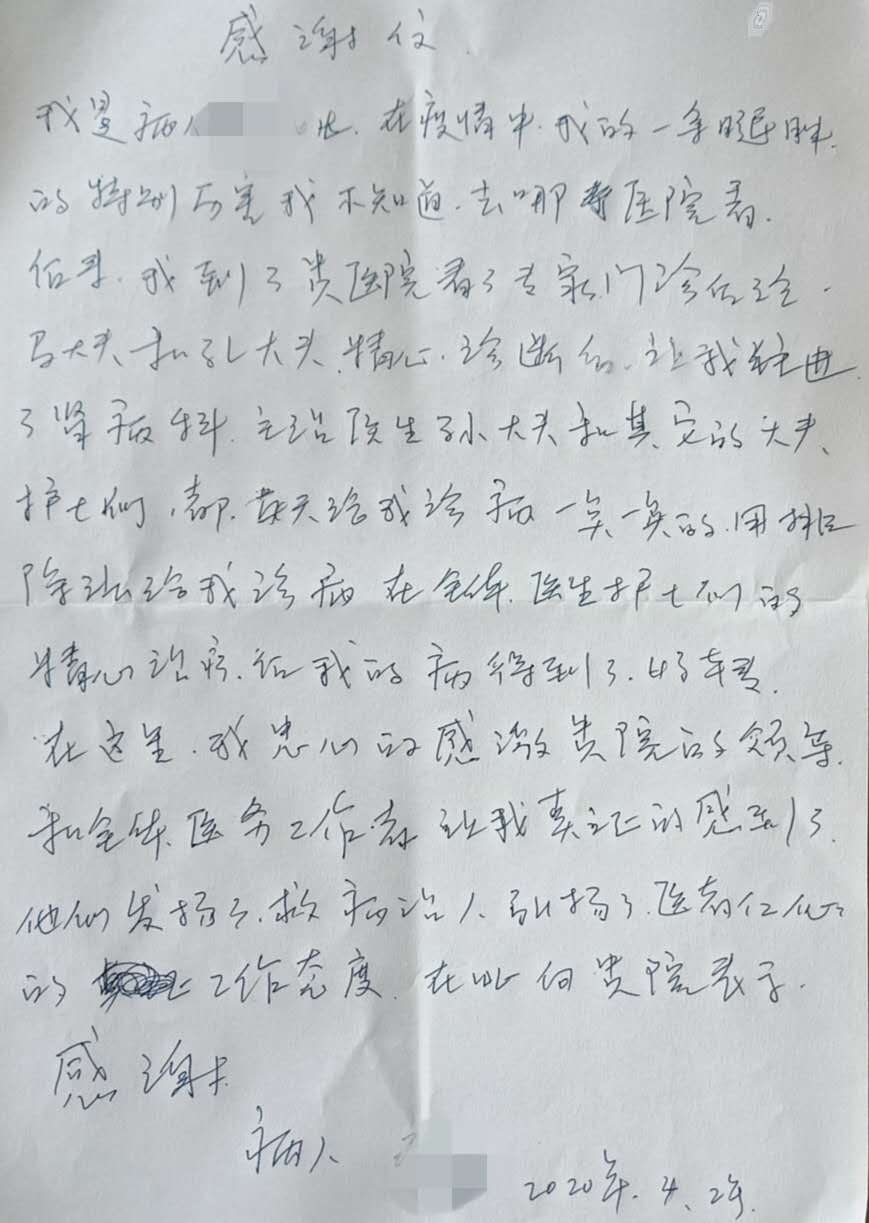 感谢信
我是病人 在疫情中.我的一条腿肿.
的特别厉害我不知道.去哪医院看.
后来.我到了贵医院看了专家门诊
马大夫和孔大夫.精心.诊断后.让我住进.
了肾病科.主治医生孙大夫和其它的大夫、
护士们,都.每天给我诊病一矣一矣的.用排
除法给我诊病在全体.医生护士们的
精心治疗.后我的病得到了.好转.
在这里.我忠心的感激贵院的领导.
和全体.医务工作者让我真正的感到了.
他们发扬了.救病治人.引扬了.医者仁心
的工作态度.在此向贵院表示.
感谢.
病人
2020年.4.